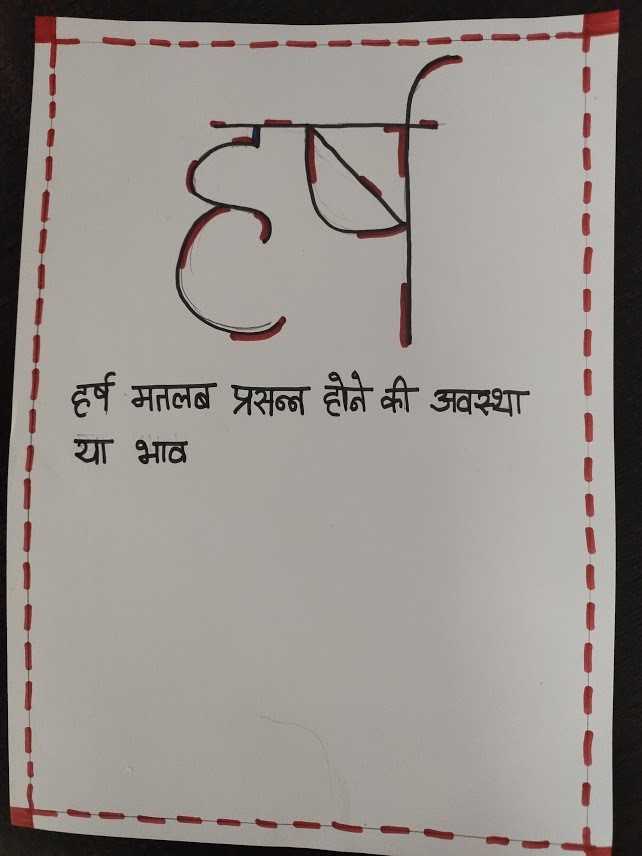 हर्ष
हर्ष मतलब प्रसन्न होने की अवस्था
या भाव